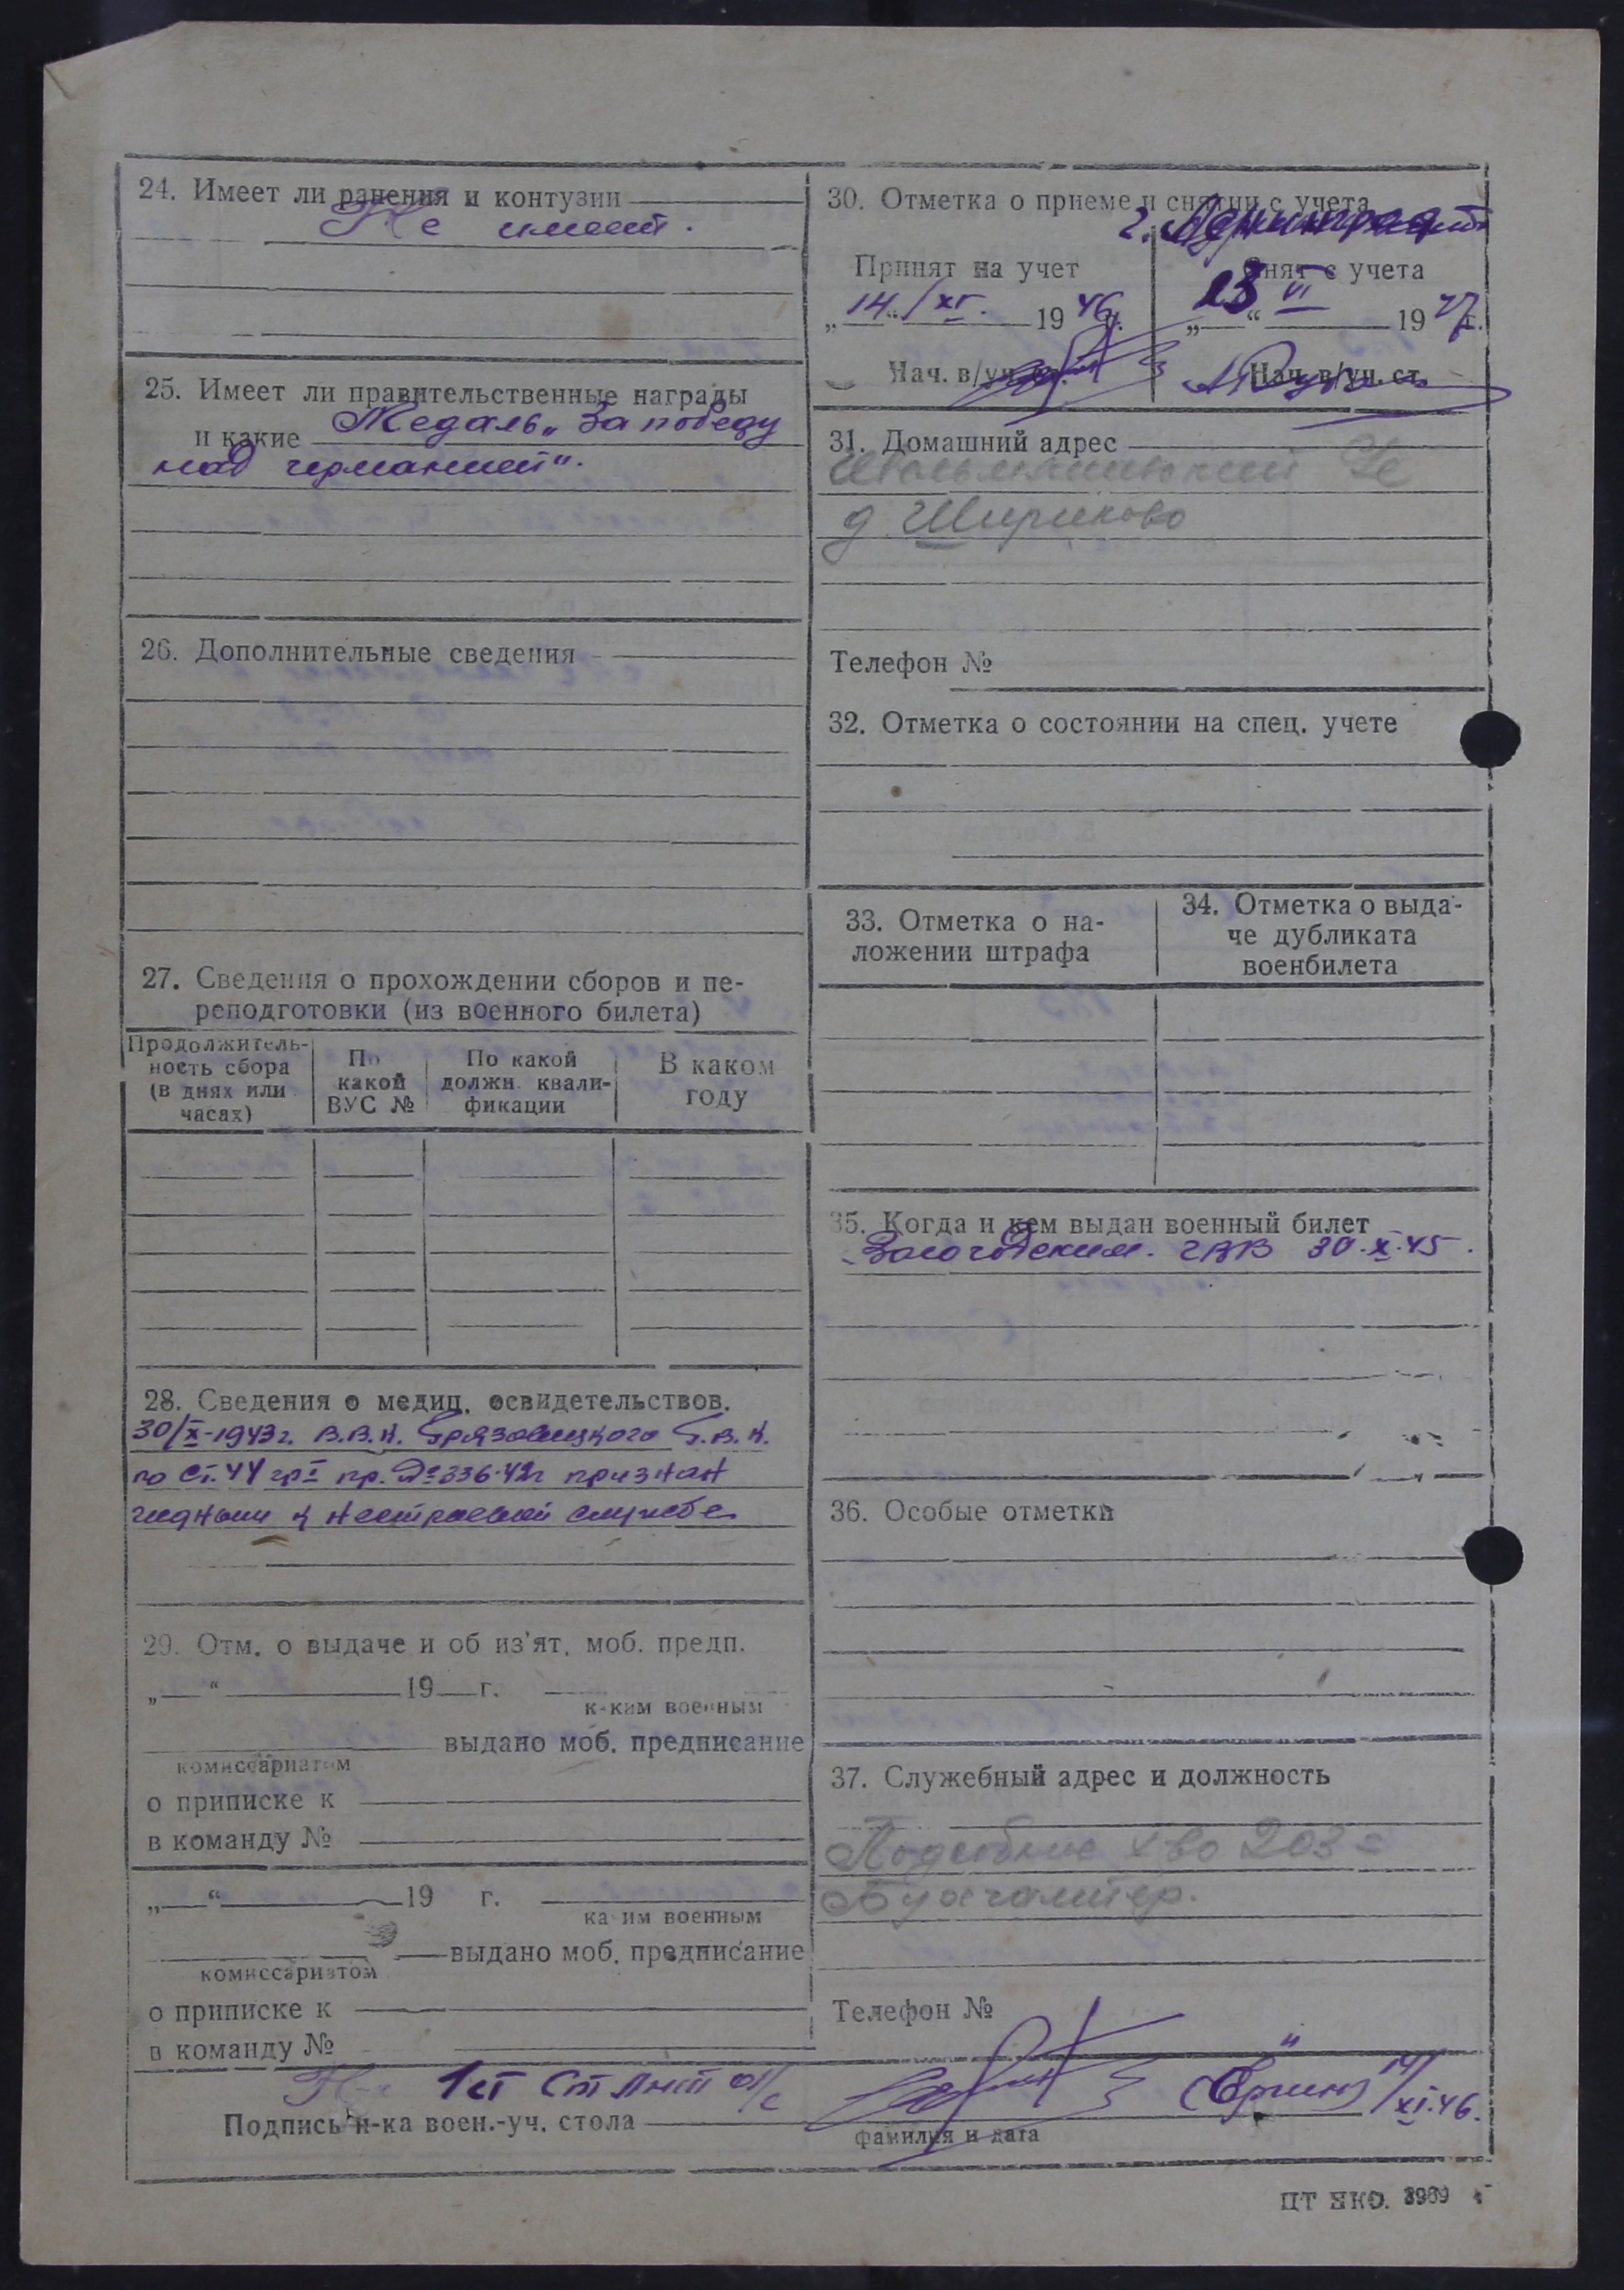 24. Имеет ли ранения и контузии
Не имеет.
25. Имеет ли правительственные награды
и какие Медаль „За победу
над германией".
26. Дополнительные сведения
27. Сведения о прохождении сборов и пе-
реподготовки (из военного билета)
Продолжитель-
ность сбора
(в днях или
часах)
По
какой
ВУС №
По какой
должн. квали-
фикации
В каком
году
28. Сведения о медиц. освидетельствов.
30/X-1943г. В.В.К. Грязовецкого Г.В.К.
по ст. 44 гр I пр. № 336-42г признан
годным к нестроевой службе
29. Отм. о выдаче и об из'ят. моб. предп.
„ “ 19 г.
каким военным
выдано моб. предписание
комиссариатом
о приписке к
в команду №
„ “ 19 г.
каким военным
выдано моб. предписание
комиссариатом
о приписке к
в команду №
30. Отметка о приеме и снятии с учета
г.
Принят на учет
„14“/XI. 1946г.
Нач. в/уч. ст.
Снят с учета
„23“ VI 1947г.
Нач. в/уч. ст.
31. Домашний адрес
д Шириково
Телефон №
32. Отметка о состоянии на спец. учете
33. Отметка о на-
ложении штрафа
34. Отметка о выда-
че дубликата
военбилета
35. Когда и кем выдан военный билет
Вологодским. ГВК 30.X.45.
36. Особые отметки
37. Служебный адрес и должность
Подсобное х-во 203
Бухгалтер.
Телефон №
1ст Ст Лнт а/с (Ёркин) 14/XI.46.
Подпись н-ка воен.-уч. стола
фамилия и дата
ЦТ НКО. 3969